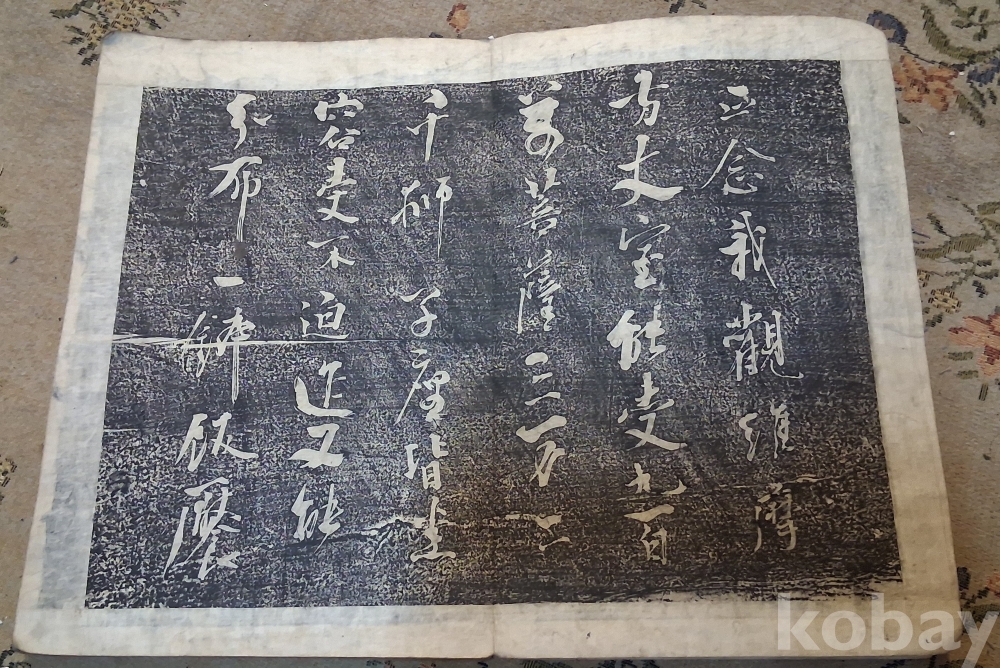 正念我觀維摩
方丈室能受九百
萬菩薩三万二
千師子座皆悉
容受不迫迮又能
分布一鉢飯饜
kobay